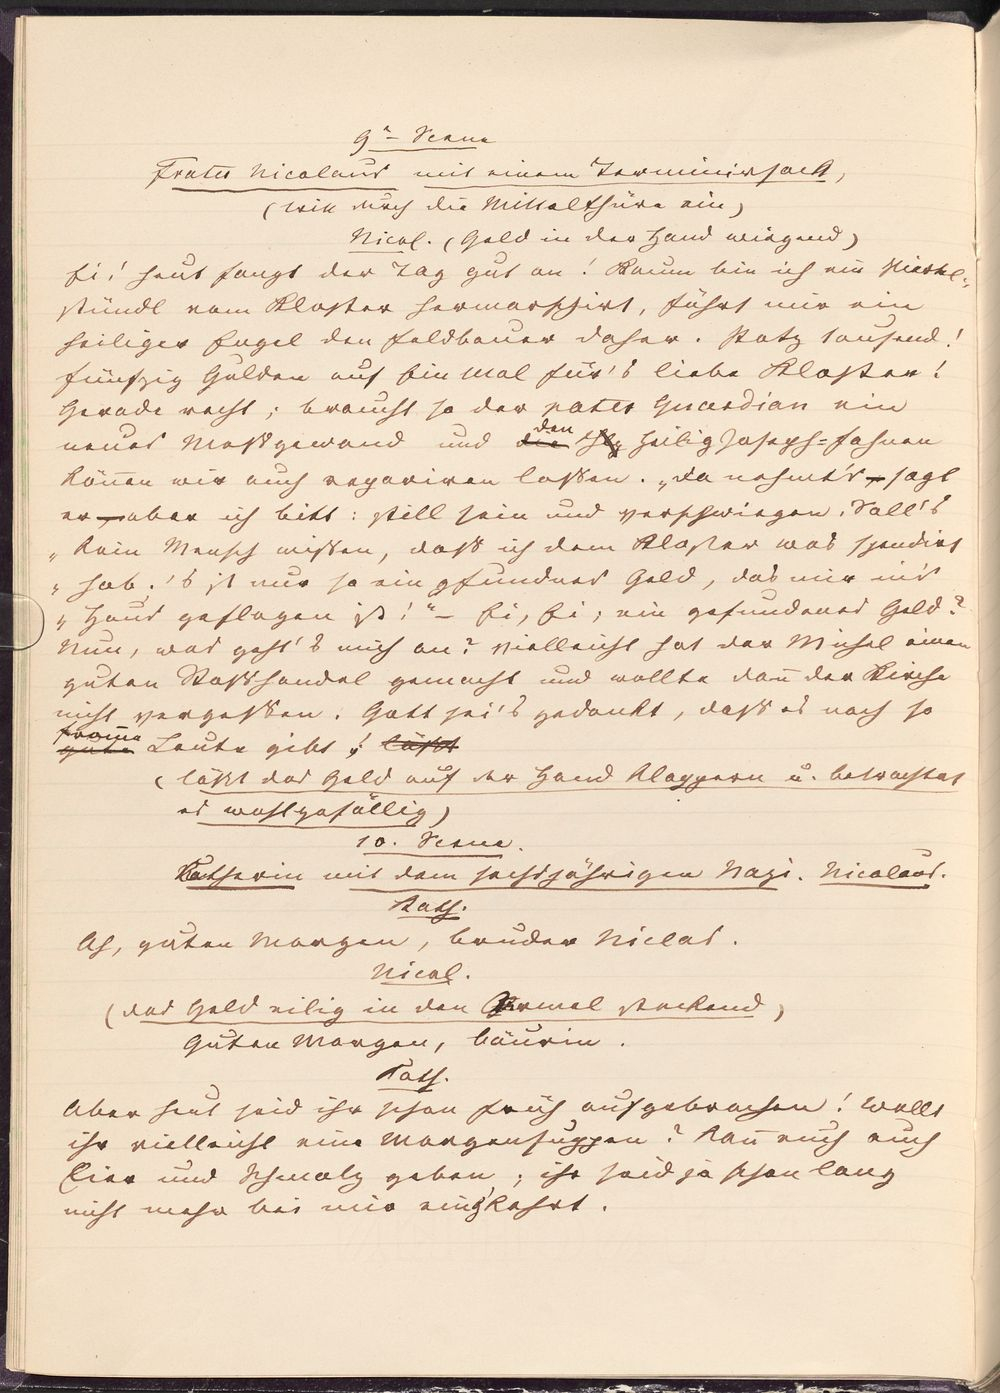 9te Scene
Frater Nicolaus mit einem Terminirsack,
(tritt durch die Mittelthüre ein)
Nicol. (Geld in der Hand wiegend)
Ei! heut fangt der Tag gut an! Kaum bin ich ein Viertel-
stündl vom Kloster hermarschirt, führt mir ein
heiliger Engel den Feldbauer daher. Potz tausend!
fünfzig Gulden auf Ein Mal für's liebe Kloster!
Gerade recht; braucht ja der pater Guardian ein
neues Meßgewand und den heilig Joseph=Fahnen
können wir auch repariren lassen. „Da nehmt's – sagt
er – aber ich bitt: still sein und verschwiegen. Soll's
„kein Mensch wissen, daß ich dem Kloster was spendirt
„hab; 's ist nur so ein gfundnes Geld, das mir in's
„Haus geflogen ist!" – Ei, Ei; ein gefundenes Geld?
Nun, was geht's mich an? Vielleicht hat der Michel einen
guten Roßhandel gemacht und wollte dañ der Kirche
nicht vergessen. Gott sei's gedankt, daß es noch so
fromme Leute gibt!
(läßt das Geld auf der Hand klappern u. betrachtet
es wohlgefällig)
10. Scene.
Katherin mit dem sechsjährigen Nazi. Nicolaus.
Kath.
Ah, guten Morgen, bruder Niclas.
Nicol.
(das Geld eilig in den Ermel steckend)
Guten Morgen, bäurin.
Kath.
Aber heut seid ihr schon früh aufgebrochen! Wollt
ihr vielleicht eine Morgensuppen? Kañ euch auch
Eier und Schmalz geben; ihr seid ja schon lang
nicht mehr bei mir eing'kehrt.